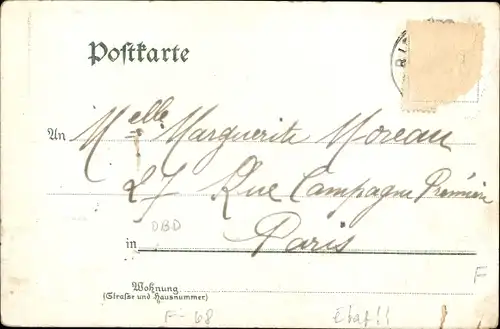 Postkarte
An Melle Marguerite Moreau
27 Rue Campagne Première
in Paris
Wohnung
(Straße und Hausnummer)
DBD
F
F-68
Etat!!